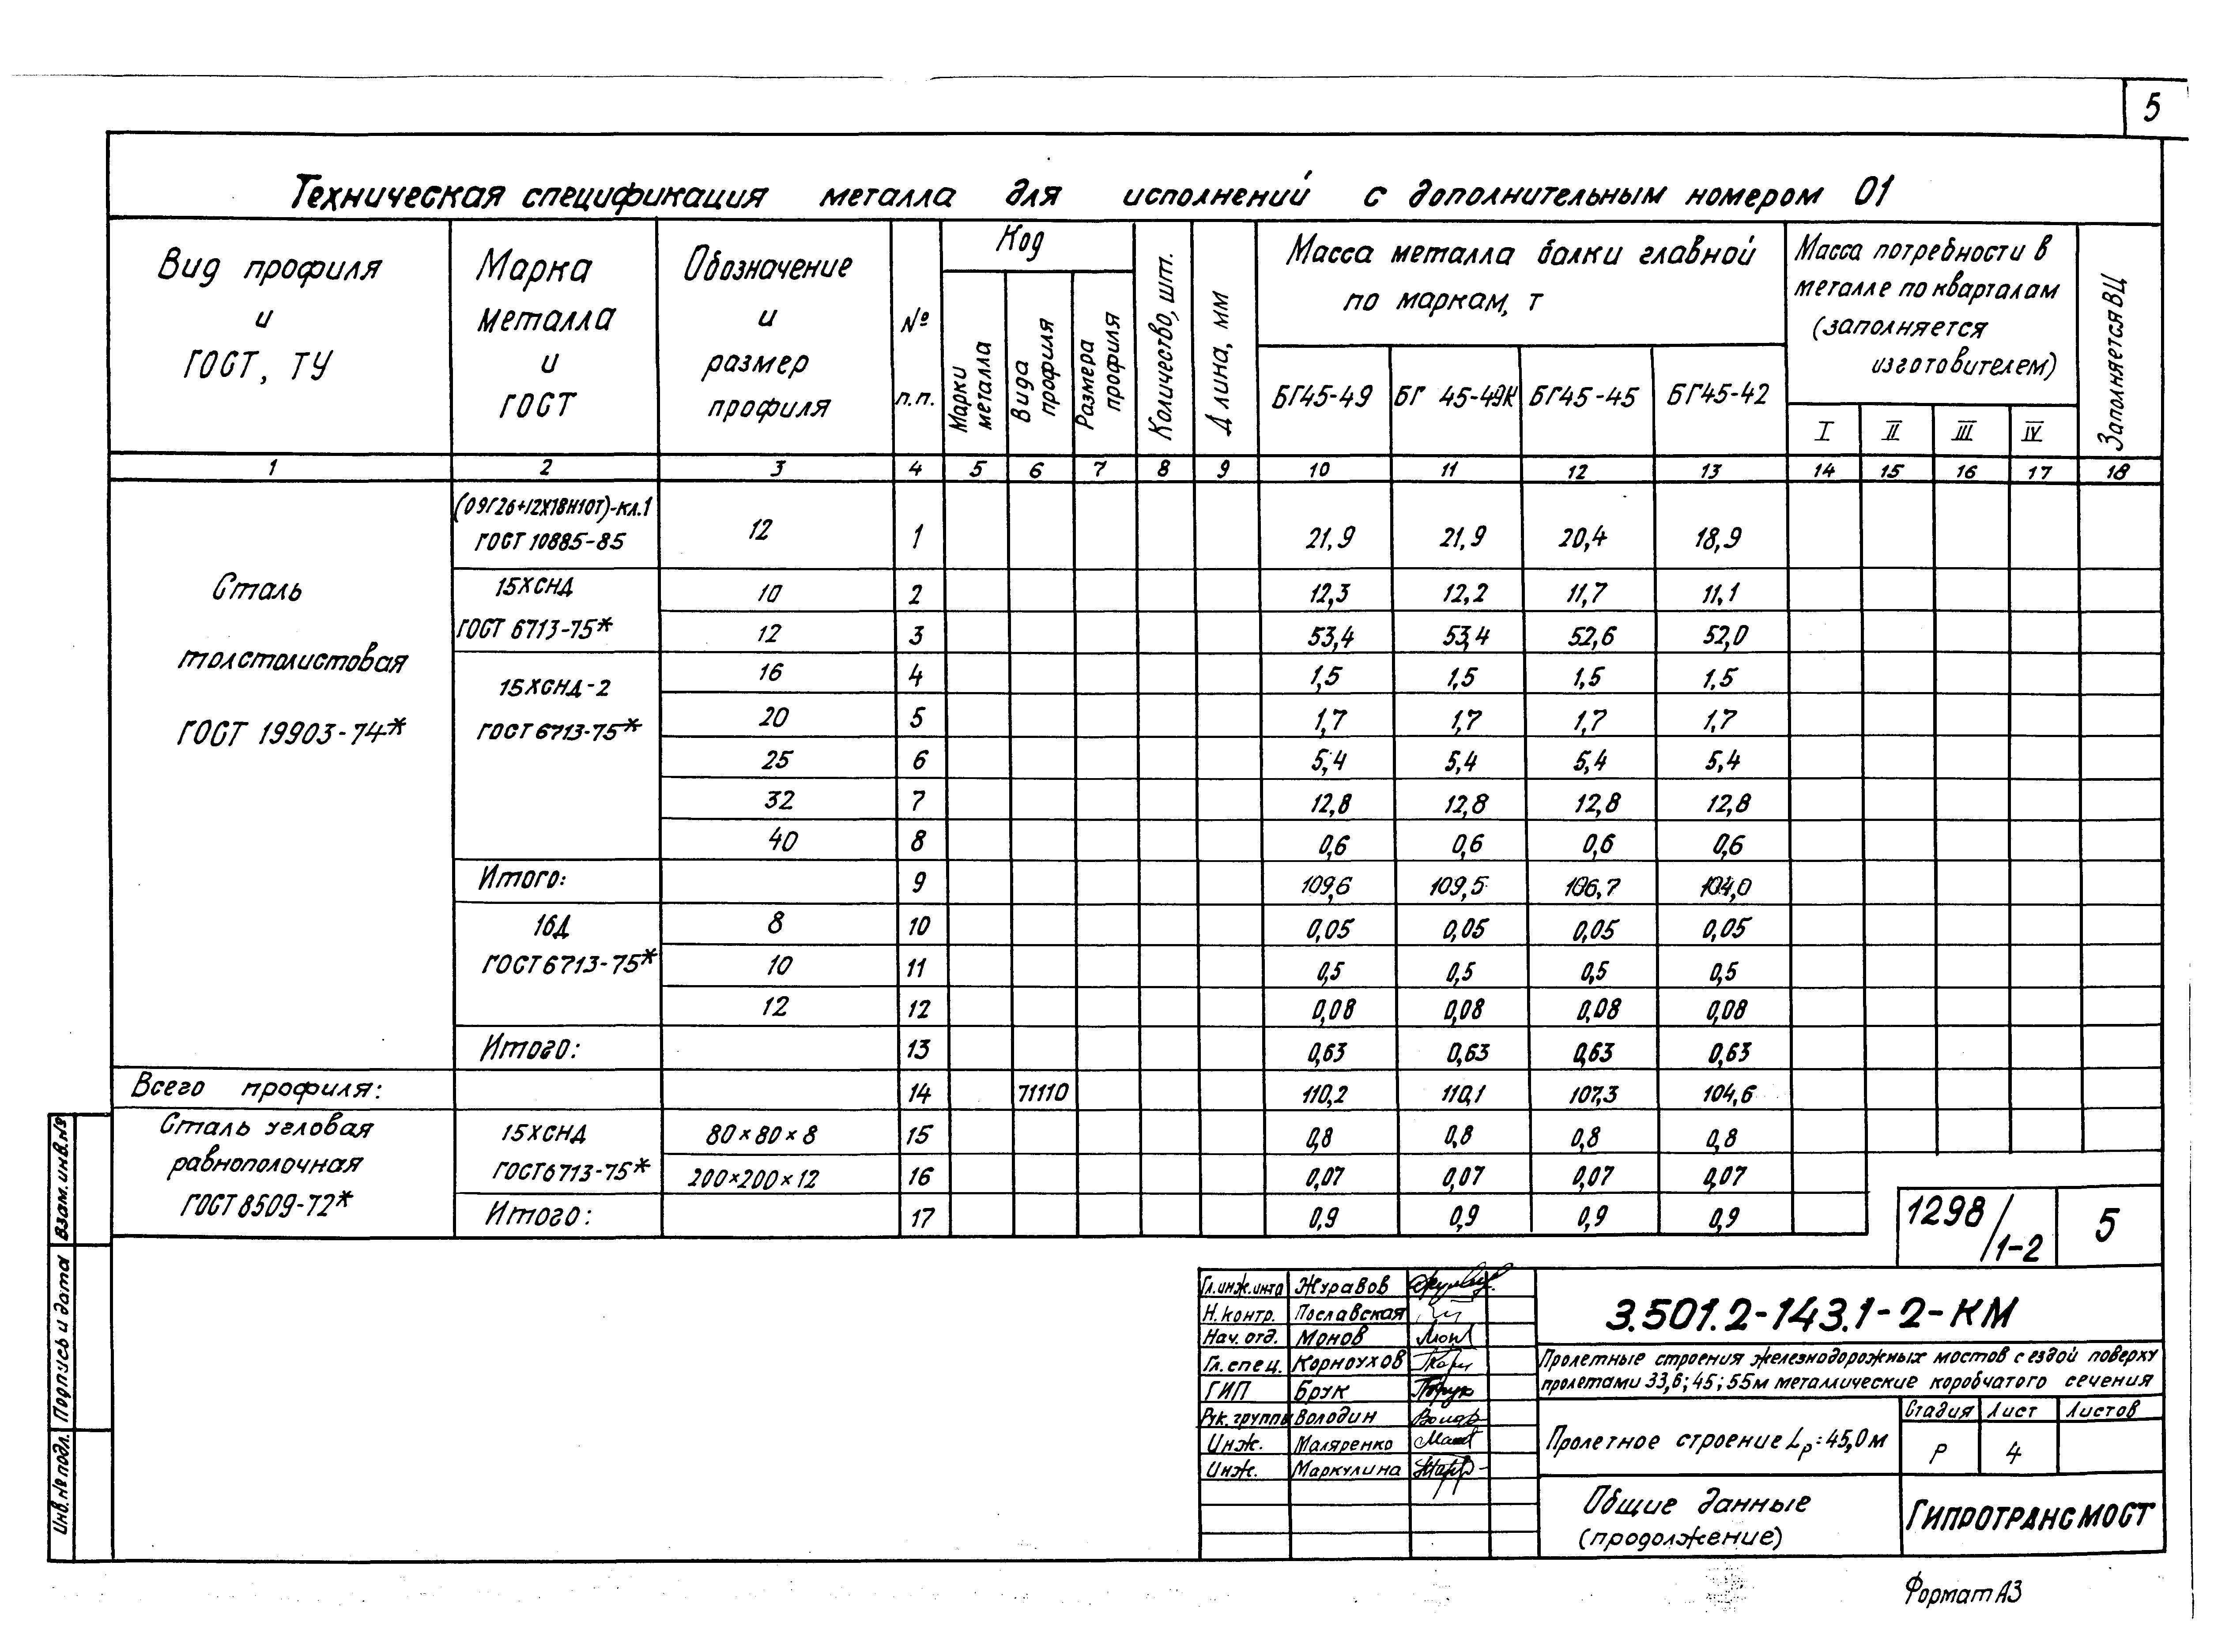 5
Техническая спецификация металла для исполнений с дополнительным номером 01
Вид профиля и ГОСТ, ТУ
Марка металла и ГОСТ
Обозначение и размер профиля
№ п.п.
Код
Марки металла
Вида профиля
Размера профиля
Количество, шт.
Длина, мм
Масса металла балки главной по маркам, т
БГ45-49 БГ 45-49К БГ45-45 БГ45-42
Масса потребности в металле по кварталам (заполняется изготовителем)
I II III IV
Заполняется ВЦ
1 2 3 4 5 6 7 8 9 10 11 12 13 14 15 16 17 18
Сталь толстолистовая ГОСТ 19903-74*
(09Г2б+12Х18Н10Т)-кл.1 ГОСТ 10885-85 12 1 21,9 21,9 20,4 18,9
15ХСНД ГОСТ 6713-75* 10 2 12,3 12,2 11,7 11,1
12 3 53,4 53,4 52,6 52,0
15ХСНД-2 ГОСТ 6713-75* 16 4 1,5 1,5 1,5 1,5
20 5 1,7 1,7 1,7 1,7
25 6 5,4 5,4 5,4 5,4
32 7 12,8 12,8 12,8 12,8
40 8 0,6 0,6 0,6 0,6
Итого: 9 109,6 109,5 106,7 104,0
16Д ГОСТ 6713-75* 8 10 0,05 0,05 0,05 0,05
10 11 0,5 0,5 0,5 0,5
12 12 0,08 0,08 0,08 0,08
Итого: 13 0,63 0,63 0,63 0,63
Всего профиля: 14 71110 110,2 110,1 107,3 104,6
Сталь угловая равнополочная ГОСТ 8509-72*
15ХСНД ГОСТ 6713-75* 80×80×8 15 0,8 0,8 0,8 0,8
200×200×12 16 0,07 0,07 0,07 0,07
Итого: 17 0,9 0,9 0,9 0,9
1298/1-2 5
Взам. инв. №
Подпись и дата
Инв. № подл.
Гл. инж. инта Журавов
Н. контр. Пославская
Нач. отд. Монов
Гл. спец. Корноухов
ГИП Брук
Рук. группы Володин
Инж. Маляренко
Инж. Маркулина
3.501.2-143.1-2-КМ
Пролетные строения железнодорожных мостов с ездой поверху
пролетами 33,6; 45; 55м металлические коробчатого сечения
Пролетное строение Lр=45,0м
Стадия Лист Листов
Р 4
Общие данные
(продолжение)
ГИПРОТРАНСМОСТ
Формат А3